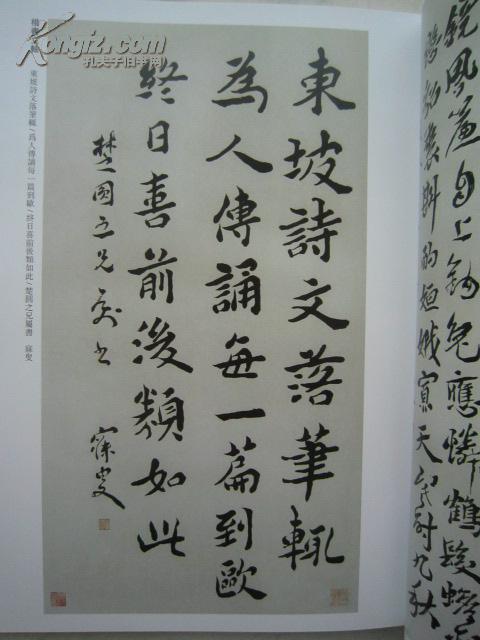 東坡詩文落筆輒
為人傳誦每一篇到歐
終日喜前後類如此
楚園立兄屬書
寐叟
東坡詩文落筆輒/爲人傳誦每一篇到歐/終日喜前後類如此/楚園之兄屬書 寐叟
鏡風簾自上鉤兔應憐鶴髮蟾
娥賓天
九秋
Kongfz.com
孔夫子旧书网